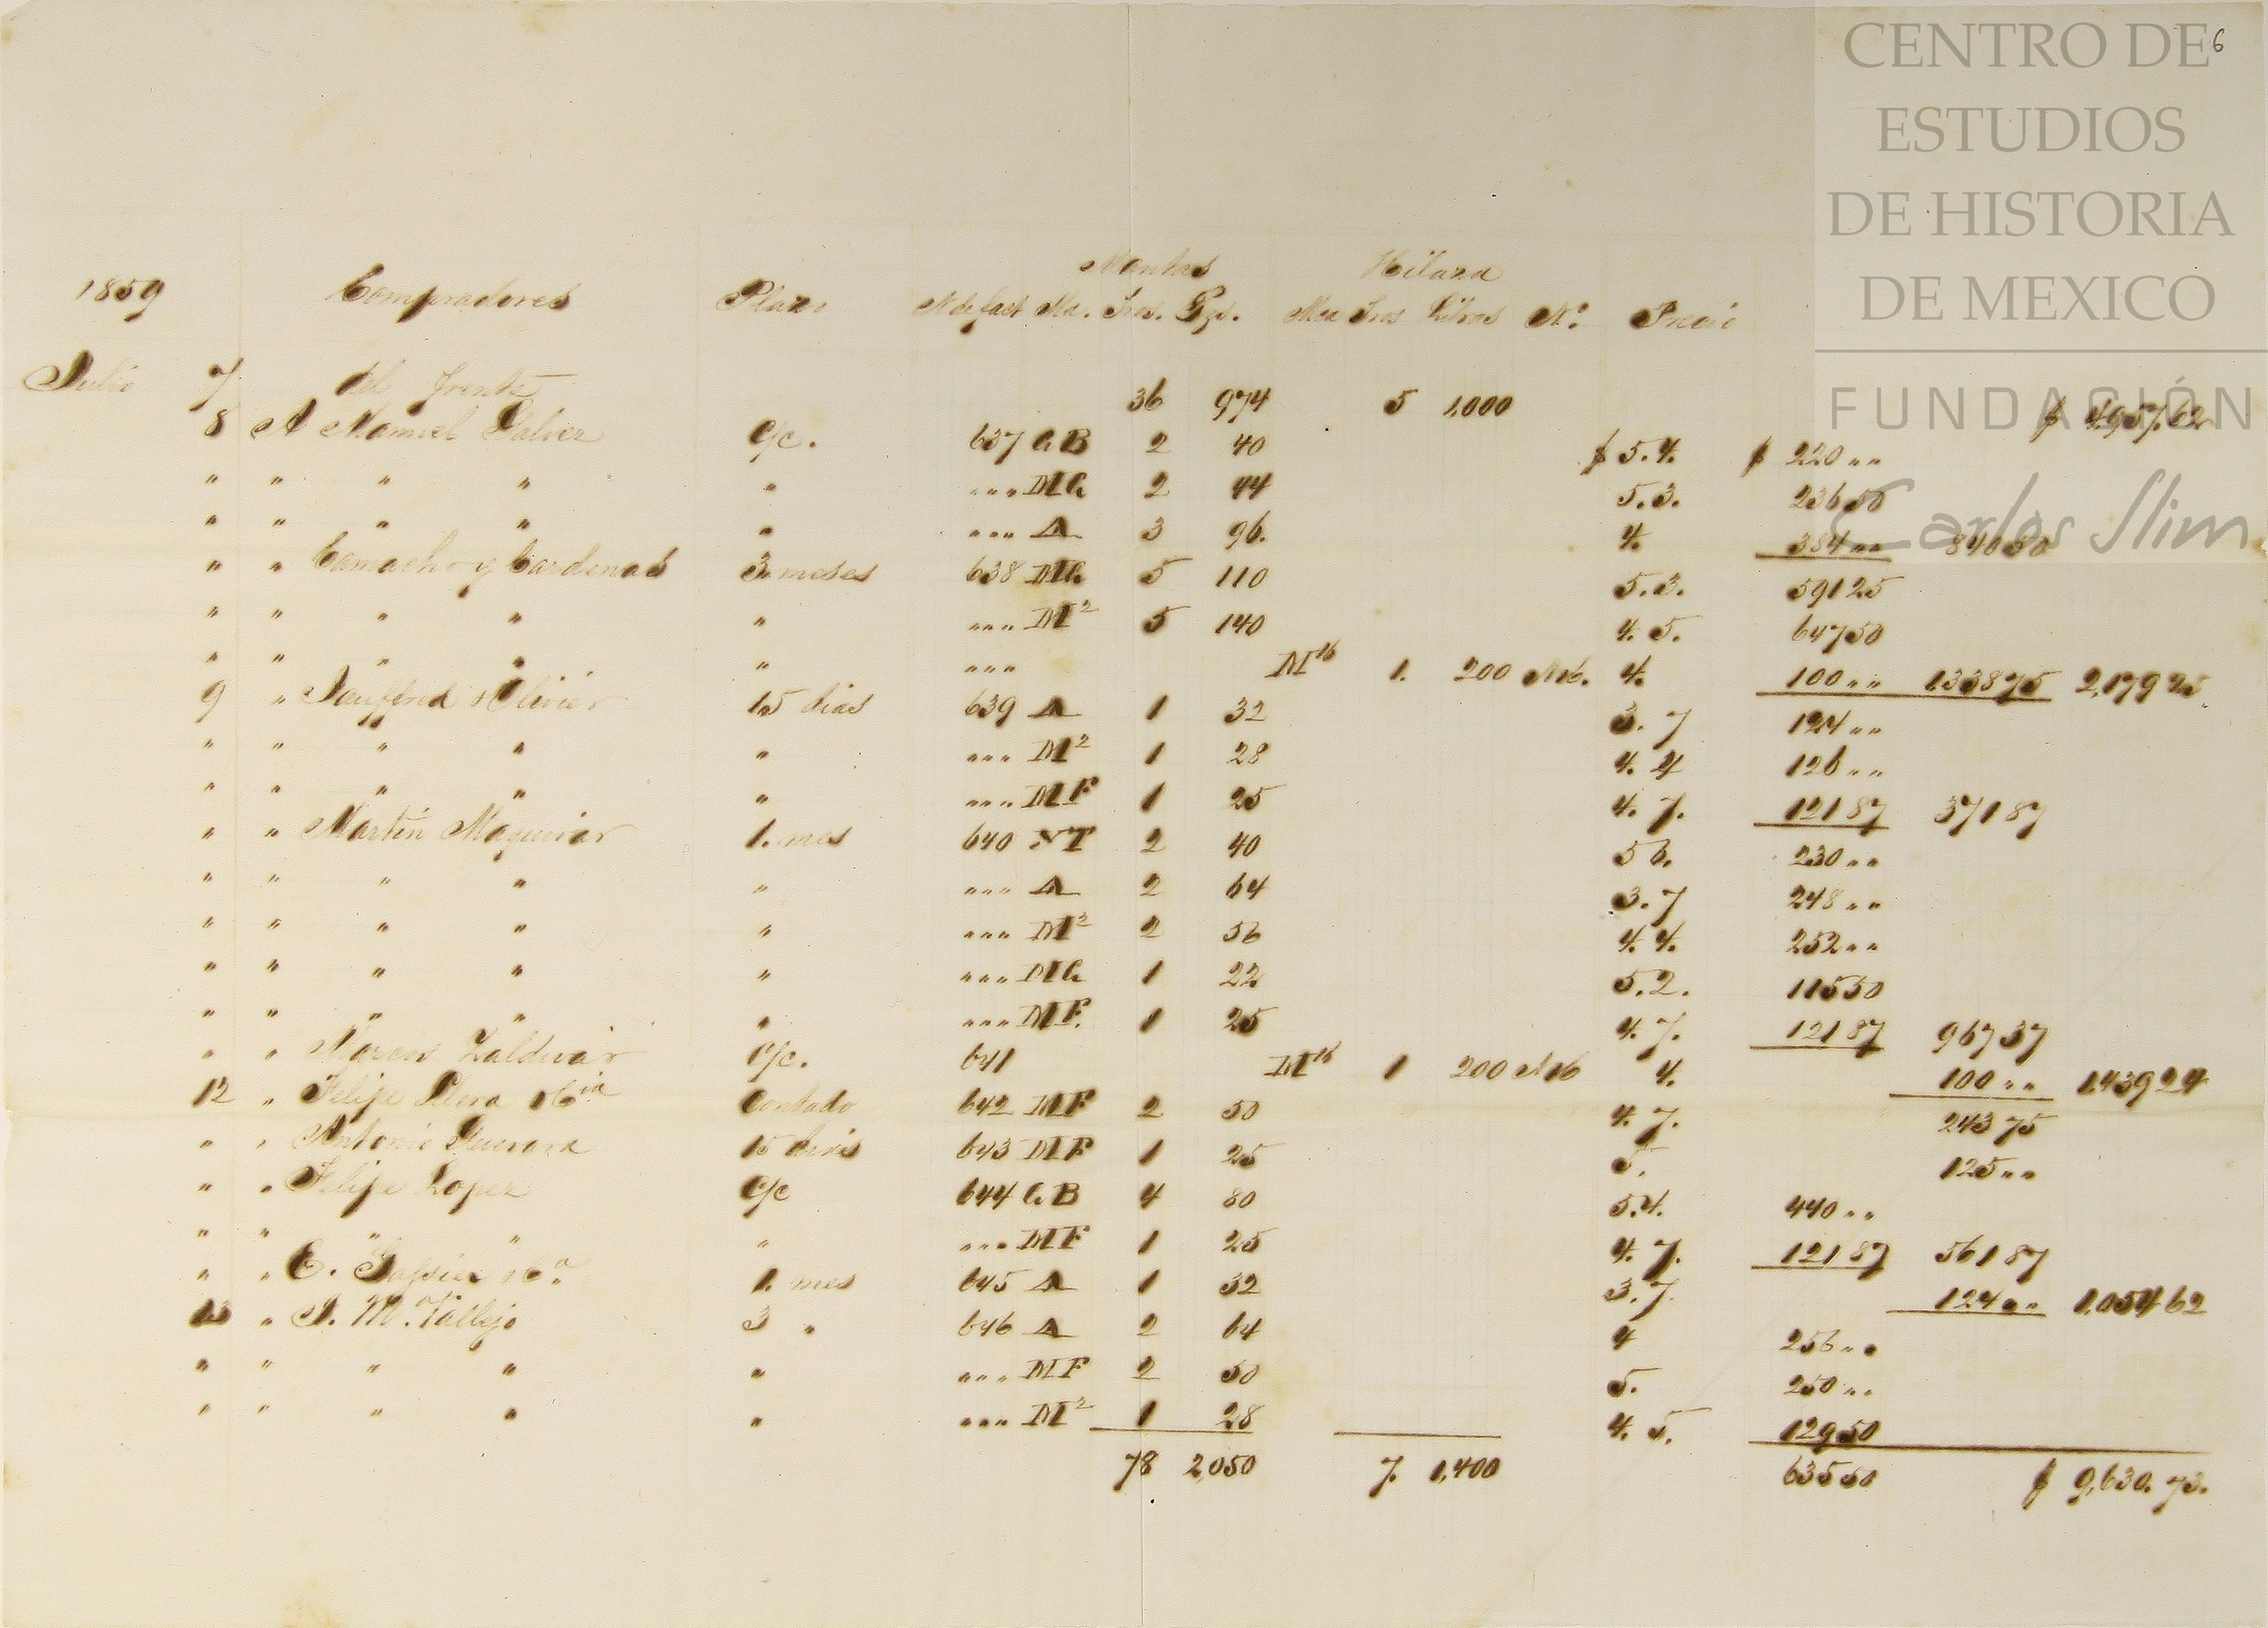 CENTRO DE
ESTUDIOS
DE HISTORIA
DE MEXICO
FUNDACIÓN
Carlos Slim
6
Mantas Hilaza
1859 Compradores Plazo N de fact Ma. Tros. Pzs. Mca Tros Libras Nº Precio
Julio 7 del frente 36 974 5 1,000 $ 4,957.62
8 A Manuel Galvez c/c. 637 GB 2 40 $ 5.4. $ 220 " "
" " " " " " " " MG 2 44 5.3. 236 50
" " " " " " " " A 3 96. 4. 384 " " 840 50
" " Camacho y Cardenas 3. meses 638 MG 5 110 5.3. 591 25
" " " " " " " " M2 5 140 4. 5. 647 50
" " " " " " " " M16 1. 200 N16. 4. 100 " " 1338 75 2,179 25
9 " Jauffred y Olivier 15 dias 639 A 1 32 3. 7 124 " "
" " " " " " " " M2 1 28 4. 4 126 " "
" " " " " " " " MF 1 25 4. 7. 121 87 371 87
" " Martin 1. mes 640 NT 2 40 5 6. 230 " "
" " " " " " " " A 2 64 3. 7 248 " "
" " " " " " " " M2 2 56 4. 4. 252 " "
" " " " " " " " MG 1 22 5. 2. 115 50
" " " " " " " " MF. 1 25 4. 7. 121 87 967 37
" " Marcos Zaldivar c/c. 641 M16 1 200 N16 4. 100 " " 1,439 24
12 " Felipe Contado 642 MF 2 50 4. 7. 243 75
" " Antonio Guevara 15 dias 643 MF 1 25 5. 125 " "
" " Felipe Lopez c/c 644 GB 4 80 5.4. 440 " "
" " " " " " " " MF 1 25 4. 7. 121 87 561 87
" " E. 1. mes 645 A 1 32 3. 7. 124 " " 1,054 62
13 " J. M. Vallejo 3 " 646 A 2 64 4 256 " "
" " " " " " " " MF 2 50 5. 250 " "
" " " " " " " " M2 1 28 4. 5. 129 50
78 2,050 7. 1,400 635 50 $ 9,630. 73.